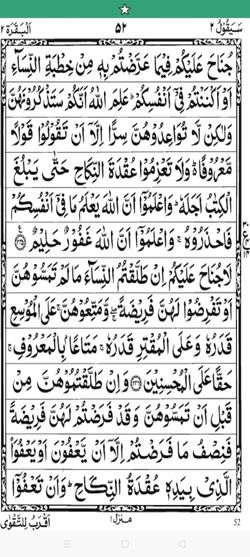 سَيَقُوْلُ ٢ ٥٢ اَلْبَقَرَة ٢
جُنَاحَ عَلَيْكُمْ فِيْمَا عَرَّضْتُمْ بِهٖ مِنْ خِطْبَةِ النِّسَآءِ
اَوْ اَكْنَنْتُمْ فِيْۤ اَنْفُسِكُمْ ؕ عَلِمَ اللّٰهُ اَنَّكُمْ سَتَذْكُرُوْنَهُنَّ
وَلٰكِنْ لَّا تُوَاعِدُوْهُنَّ سِرًّا اِلَّاۤ اَنْ تَقُوْلُوْا قَوْلًا
مَّعْرُوْفًا ؕ وَلَا تَعْزِمُوْا عُقْدَةَ النِّكَاحِ حَتّٰى يَبْلُغَ
الْكِتٰبُ اَجَلَهٗ ؕ وَاعْلَمُوْۤا اَنَّ اللّٰهَ يَعْلَمُ مَا فِيْۤ اَنْفُسِكُمْ
فَاحْذَرُوْهُ ۚ وَاعْلَمُوْۤا اَنَّ اللّٰهَ غَفُوْرٌ حَلِيْمٌ ﴿٢٣٥﴾
لَا جُنَاحَ عَلَيْكُمْ اِنْ طَلَّقْتُمُ النِّسَآءَ مَا لَمْ تَمَسُّوْهُنَّ
اَوْ تَفْرِضُوْا لَهُنَّ فَرِيْضَةً ۖۚ وَّمَتِّعُوْهُنَّ ۚ عَلَى الْمُوْسِعِ
قَدَرُهٗ وَعَلَى الْمُقْتِرِ قَدَرُهٗ ۚ مَتَاعًۢا بِالْمَعْرُوْفِ ۚ
حَقًّا عَلَى الْمُحْسِنِيْنَ ﴿٢٣٦﴾ وَاِنْ طَلَّقْتُمُوْهُنَّ مِنْ
قَبْلِ اَنْ تَمَسُّوْهُنَّ وَقَدْ فَرَضْتُمْ لَهُنَّ فَرِيْضَةً
فَنِصْفُ مَا فَرَضْتُمْ اِلَّاۤ اَنْ يَّعْفُوْنَ اَوْ يَعْفُوَا
الَّذِيْ بِيَدِهٖ عُقْدَةُ النِّكَاحِ ؕ وَاَنْ تَعْفُوْۤا
اَقْرَبُ لِلتَّقْوٰى منزل ١ 52